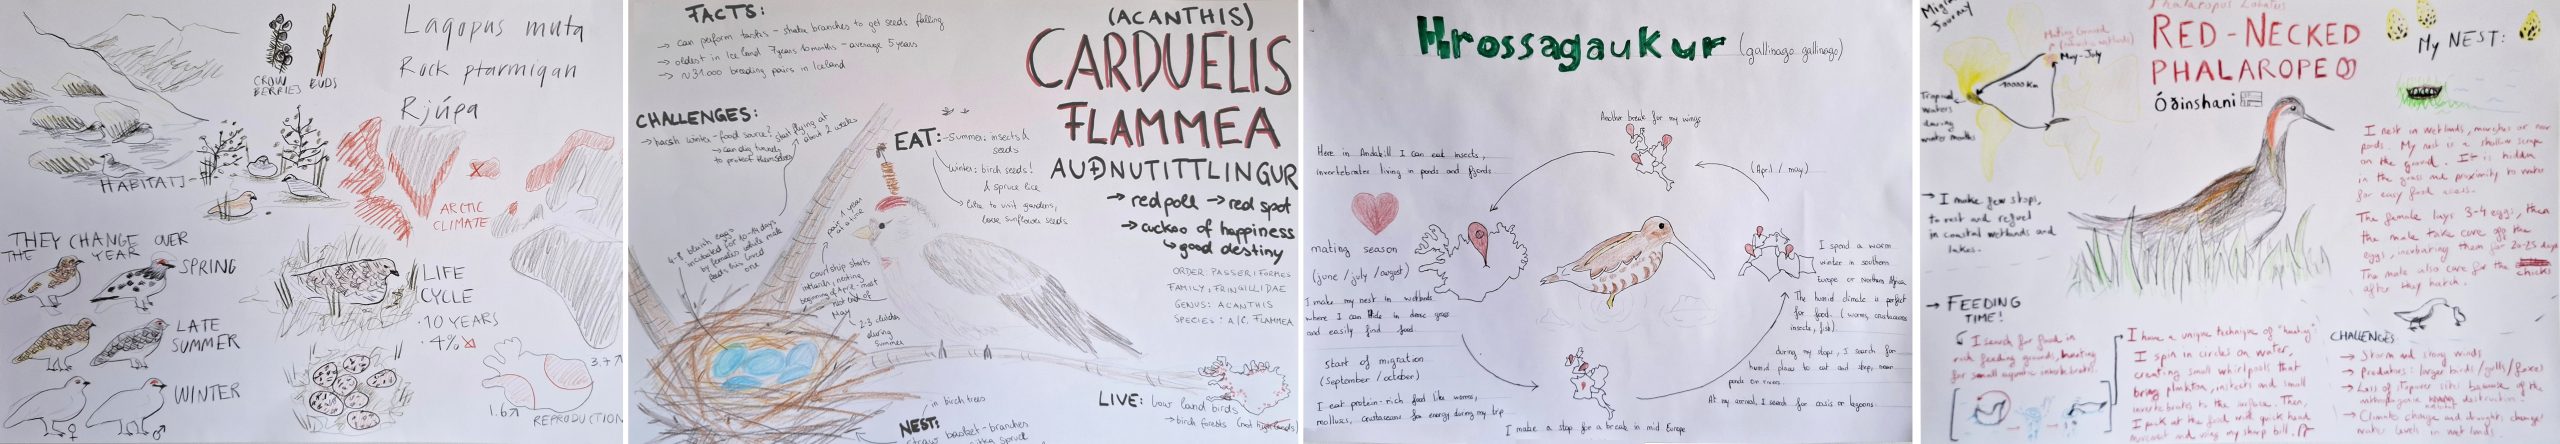 Lagopus muta
Rock ptarmigan
Rjúpa
CROW
BERRIES
BUDS
HABITATS
ARCTIC
CLIMATE
THEY CHANGE OVER
THE YEAR
SPRING
LATE
SUMMER
WINTER
LIFE
CYCLE
· 10 YEARS
· 4%
3.7
1.6
REPRODUCTION
FACTS:
→ can perform tasks - shake branches to get seeds falling
→ oldest in Iceland 7 years 10 months - average 5 years
→ ~31.000 breeding pairs in Iceland
CHALLENGES:
→ harsh winter - food source?
→ can dig tunnels
to protect themselves
start flying at
about 2 weeks
EAT:
- Summer: insects &
seeds
Winter: birch seeds!
& spruce lice
→ like to visit gardens,
love sunflower seeds
pair 1 year
at a time
4-6 blueish eggs
incubated for 10-14 days
by females while male
feeds his loved
one
Courtship starts
nesting
beginning of April - most
nest end of
May
2-3 clutches
during
summer
(ACANTHIS)
CARDUELIS
FLAMMEA
AUÐNUTITTLINGUR
→ redpoll → red spot
→ cuckoo of happiness
↳ good destiny
ORDER: PASSERIFORMES
FAMILY: FRINGILLIDAE
GENUS: ACANTHIS
SPECIES: A/C. FLAMMEA
LIVE: low land birds
→ birch forests (not highlands)
NEST:
in birch trees
straw basket - branches
Hrossagaukur (gallinago gallinago)
Another break for my wings
Here in Andakíll I can eat insects,
invertebrates living in ponds and fjords
(April / may)
mating season
(june / july / august)
I make my nest in wetlands
where I can hide in dense grass
and easily find food
I spend a warm
winter in southern
Europe or Northern Africa
The humid climate is perfect
for food. (worms, crustaceans
insects, fish)
start of migration
(September / october)
I eat protein-rich food like worms,
molluscs, crustaceans for energy during my trip
during my stops, I search for
humid place to eat and sleep, near
ponds or rivers
At my arrival, I search for oasis or lagoons
I make a stop for a break in mid Europe
Migration
Journey
Phalaropus Lobatus
RED-NECKED
PHALAROPE
Óðinshani
Mating Ground
May-July
10000 Km
Tropical
waters
during
winter months
→ I make few stops,
to rest and refuel
in coastal wetlands and
lakes.
My NEST:
I nest in wetlands, marshes or near
ponds. My nest is a shallow scrape
on the ground. It is hidden
in the grass and proximity to water
for easy food access.
The female lays 3-4 eggs, then
the male take care of the
eggs, incubating them for 20-25 days
The male also care for the chicks
after they hatch.
→ FEEDING
TIME!
I search for food in
rich feeding grounds, hunting
for small aquatic invertebrates.
I have a unique technique of "hunting"
I spin in circles on water,
creating small whirlpools that
bring plankton, insects and small
invertebrates to the surface. Then,
I pick at the food with quick head
movement and using my sharp bill.
CHALLENGES
→ Storm and strong winds
→ Predators: larger birds / gulls / foxes
→ Loss of stopover sites because of the
destruction
→ Climate change and drought: change
water levels in wet lands